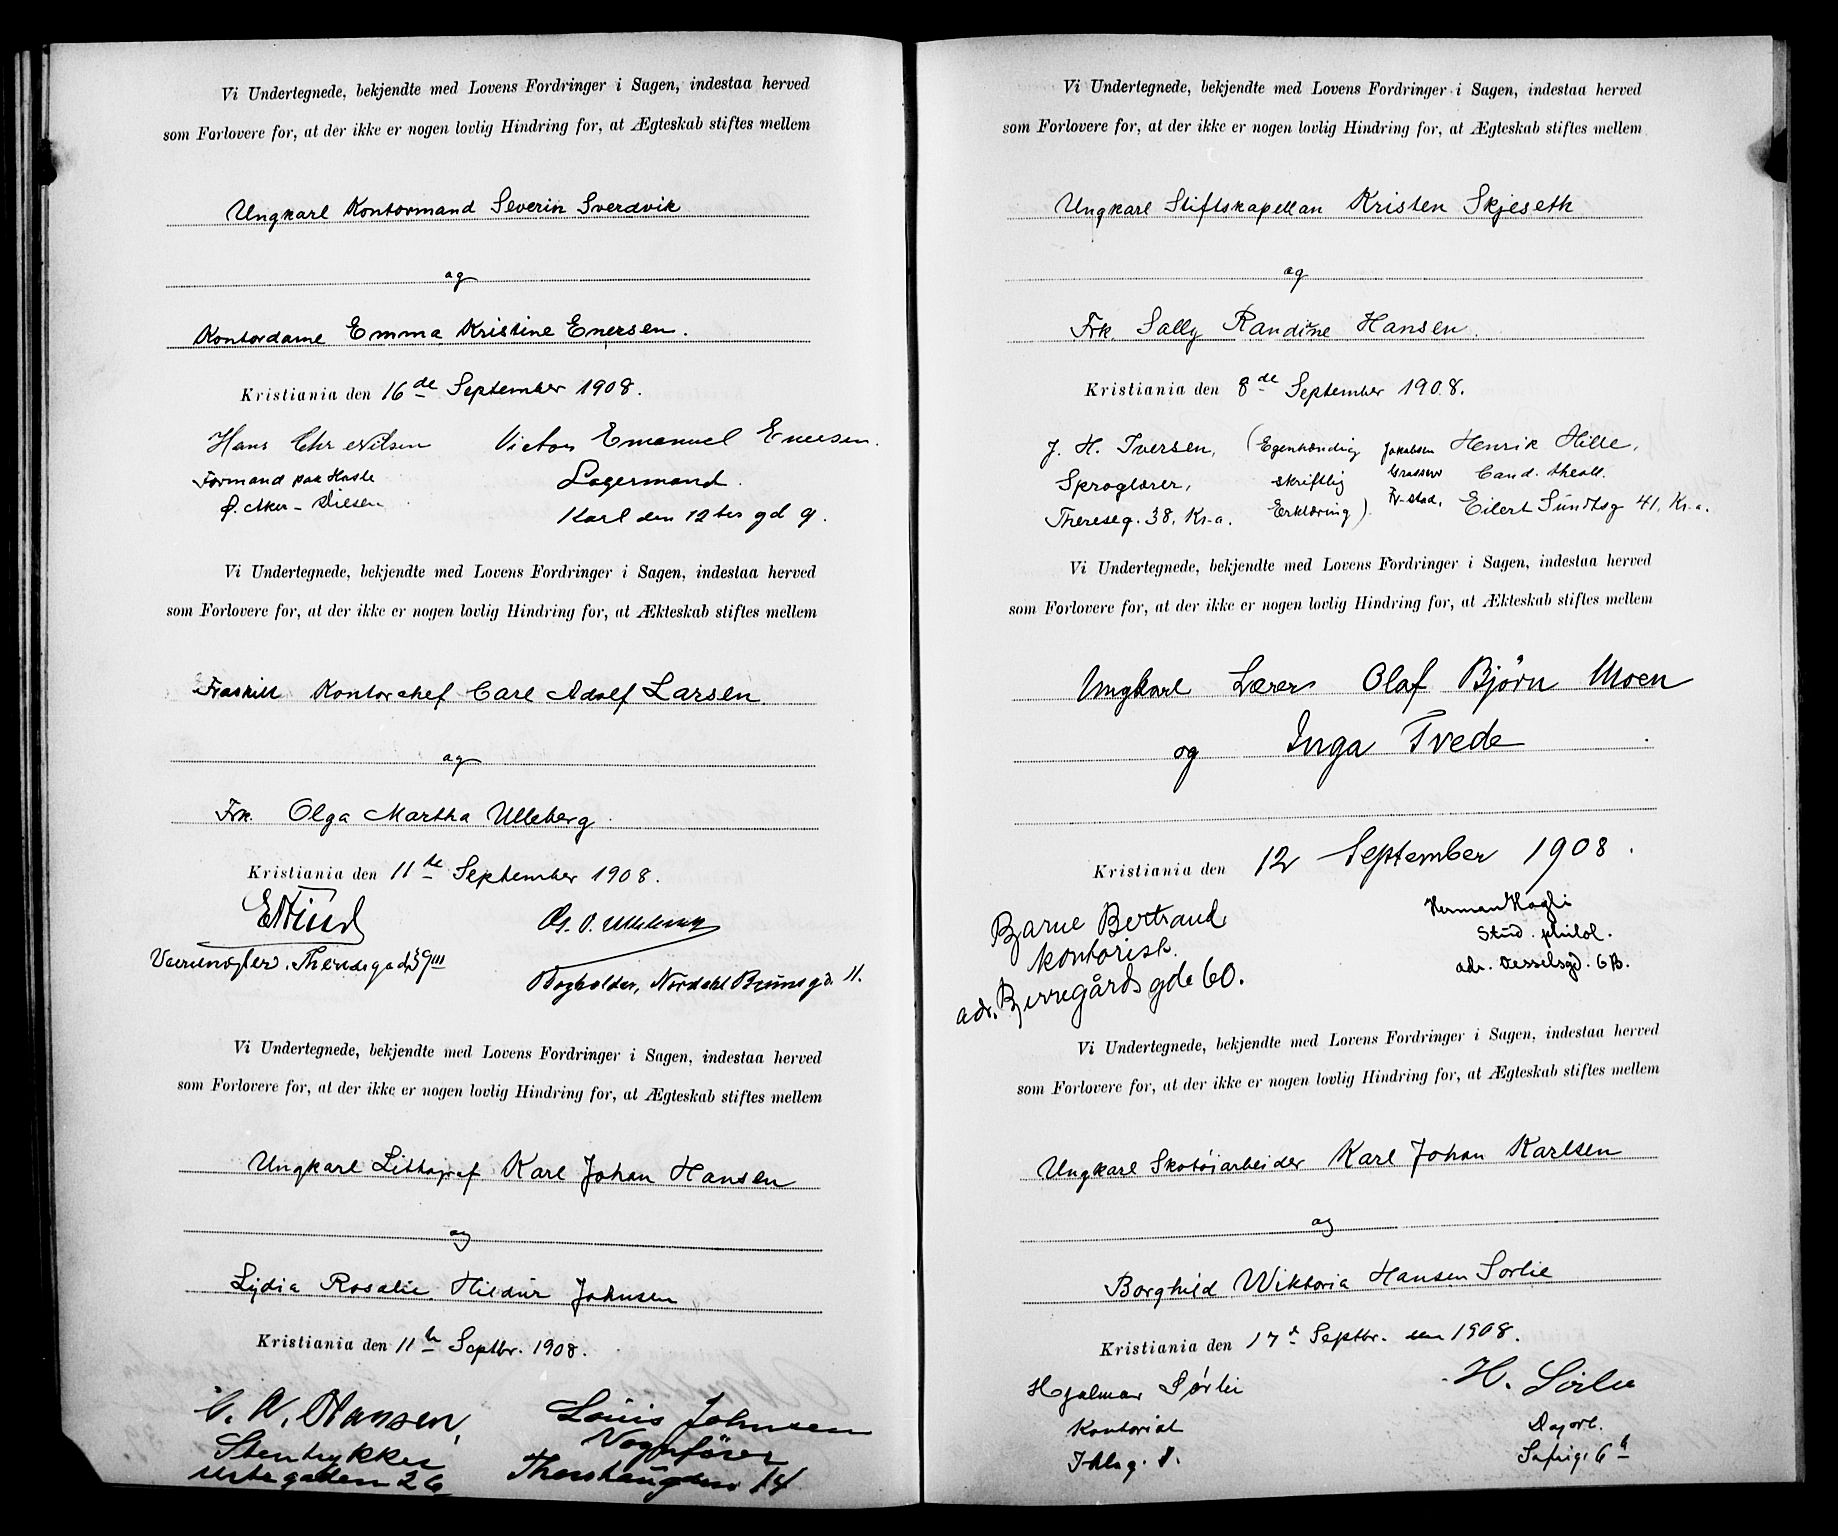 Vi Undertegnede, bekjendte med Lovens Fordringer i Sagen, indestaa herved
som Forlovere for, at der ikke er nogen lovlig Hindring for, at Ægteskab stiftes mellem
Ungkarl Kontormand Severin Sverdvik
og
Kontordame Emma Kristine Enersen.
Kristiania den 16de September 1908.
Hans Chr Nilsen
Formand paa Hasle
Ø. Aker
Victor Emanuel Enersen.
Lagermand.
Karl den 12tes gd 9.
Vi Undertegnede, bekjendte med Lovens Fordringer i Sagen, indestaa herved
som Forlovere for, at der ikke er nogen lovlig Hindring for, at Ækteskab stiftes mellem
Fraskilt Kontorchef Carl Adolf Larsen
og
Frk. Olga Martha Ulleberg.
Kristiania den 11te September 1908.
Ths. O. Ulleberg
Bogholder, Nordahl Brunsgd. 11.
Vi Undertegnede, bekjendte med Lovens Fordringer i Sagen, indestaa herved
som Forlovere for, at der ikke er nogen lovlig Hindring for, at Ægteskab stiftes mellem
Ungkarl Littograf Karl Johan Hansen
og
Lydia Rosalie Hildur Johnsen
Kristiania den 11te Septbr. 1908.
Hansen,
Stentrykker
Urtegaden 26
Louis Johnsen
Vognfører
14
Vi Undertegnede, bekjendte med Lovens Fordringer i Sagen, indestaa herved
som Forlovere for, at der ikke er nogen lovlig Hindring for, at Ægteskab stiftes mellem
Ungkarl Stiftskapellan Kristen Skjeseth
og
Frk. Sally Randine Hansen.
Kristiania den 8de September 1908.
J. H. Iversen,
Sproglærer,
Thereseg. 38, Kr.a.
(Egenhændig
skriftlig
Erklæring).
Henrik Hille,
Cand. theoll.
Eilert Sundtsg 41, Kr.a.
Vi Undertegnede, bekjendte med Lovens Fordringer i Sagen, indestaa herved
som Forlovere for, at der ikke er nogen lovlig Hindring for, at Ækteskab stiftes mellem
Ungkarl Lærer Olaf Bjørn Moen
og Inga Tvede
Kristiania den 12 September 1908.
Bjarne Bertrand
kontorist.
adr. Bjerregårds gde 60.
Herman Hagli
Stud. philol.
adr. Wesselsgd. 6B.
Vi Undertegnede, bekjendte med Lovens Fordringer i Sagen, indestaa herved
som Forlovere for, at der ikke er nogen lovlig Hindring for, at Ægteskab stiftes mellem
Ungkarl Skotøiarbeider Karl Johan Karlsen
og
Borghild Wiktoria Hansen Sørlie
Kristiania den 17d Septbr. 1908.
Hjalmar Sørlie
Kontorist
H. Sørlie
Dagarb.